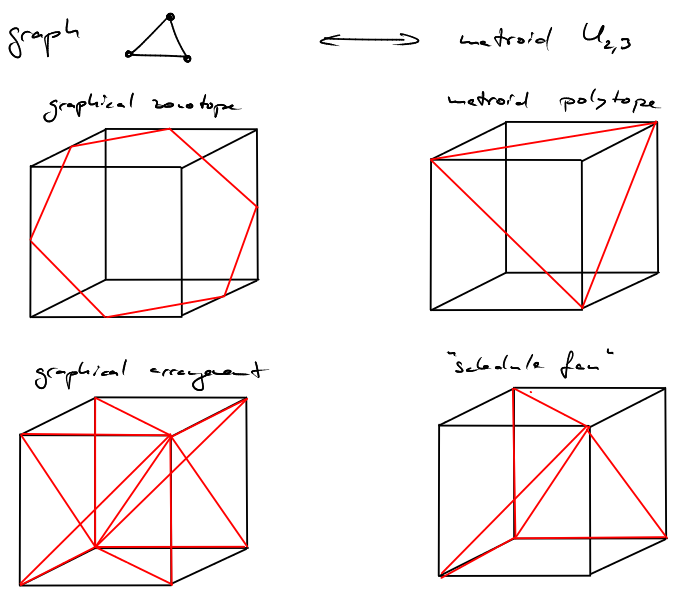 graph matroid U₂,₃
graphical zonotope matroid polytope
graphical arrangement "schedule fan"